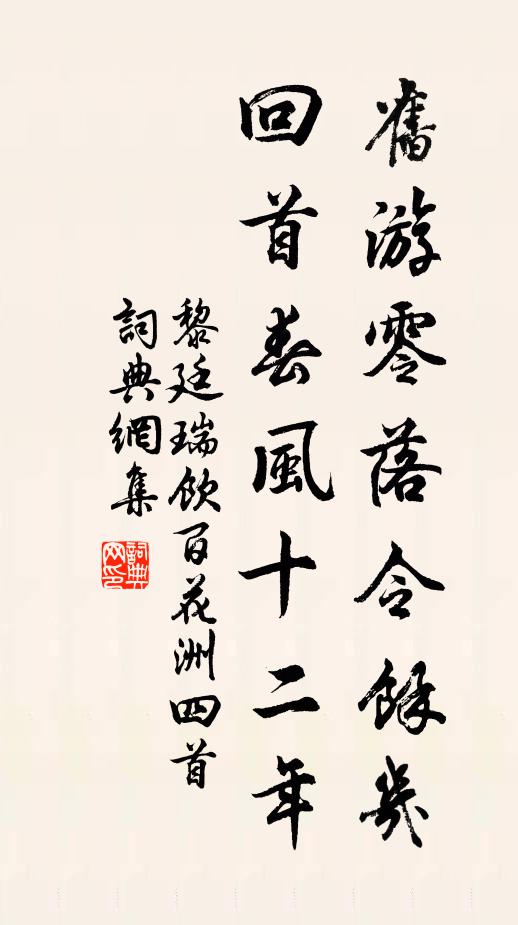 舊游零落今餘幾
回首春風十二年
黎廷瑞飲百花洲四首
詞典網集
詞典网印